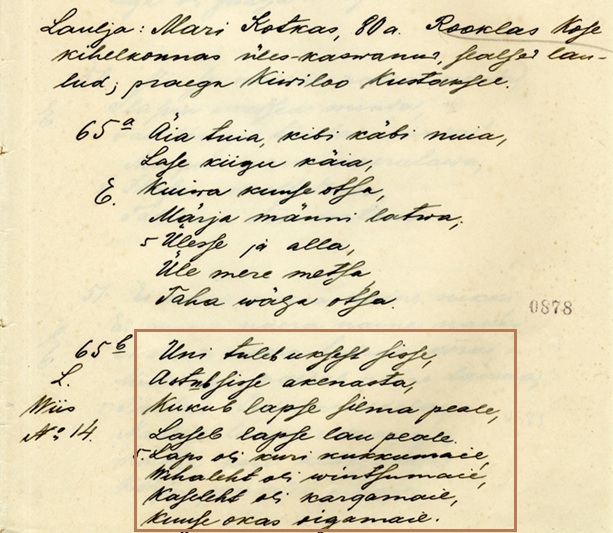 Laulja: Mari Kotkas, 80 a. Rooklas Kose
kihelkonnas üles-kaswanud, sealsed lau-
lud; praega Kiwiloo Kustansse.
65 a Äia tuia, kibi käbi nuia,
Lase kiigu käia,
E. Kuiwa kuuse otsa,
Märja männi latwa,
5 Ülesse ja alla,
Üle mere metsa
Taha wälja otsa.
0878
65 b Uni tuleb uksest sisse,
L. Astub sisse akenasta,
Wiis Kukub lapse silma peale,
No 14. Laseb lapse lau peale.
5. Laps oli kuri kukkumaie,
Wihaleht oli wintsumaie,
Kaseleht oli kargamaie,
Kuuse okas oigamaie.